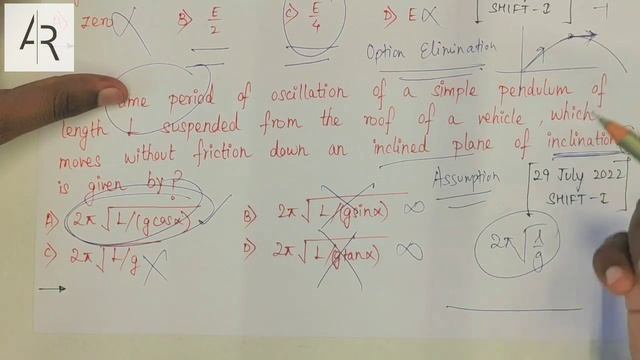 AR
zero
B) E/2
C) E/4
D) E
SHIFT-I
Option Elimination
time period of oscillation of a simple pendulum of
length L suspended from the roof of a vehicle, which
moves without friction down an inclined plane of inclination
is given by?
Assumption
[29 July 2022
SHIFT-I]
A) 2π√L/(gcosα)
B) 2π√L/(gsinα) ∞
C) 2π√L/g
D) 2π√L/(gtanα) ∞
2π√λ/g